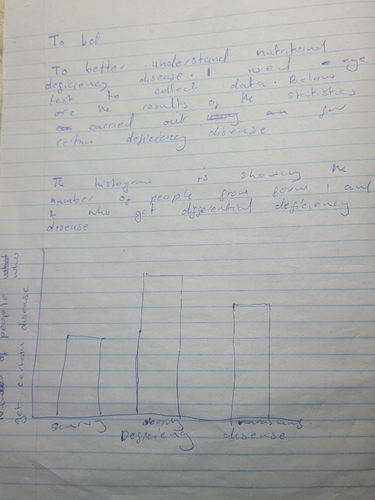 To bet
To better understand nutritional
deficiency disease. I used eye
test to collect data. Below
are the results of the statistics
carried out on for
certain deficiency disease
The histogram is showing the
number of people from form 1 and
2 who got differential deficiency
disease
Number of people who
get certain disease
Scurvy obesity marasmus
Deficiency disease